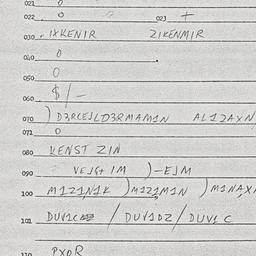 021 0
022 0 023 +
030 IXKENIR ZIKENMIR
040 0
050 0
060 $ / -
070 ) D3RCEJLD3RMAM1N AL12AXN
071 0
080 KENST ZIN
090 VEJG+ IM )-EJM
100 M1Z1N1K )M1Z1M1N )M1NAX
101 DUV1C / DUV1DZ / DUV1 C
110 PXOR